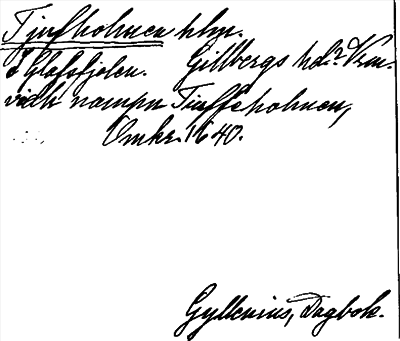 Tjufholmen hlm.
i Glafsfjolen. Gillbergs hd? Vrm.
vidh nampn Tiuffeholmen,
Omkr. 1640.
Gyllenius, Dagbok.